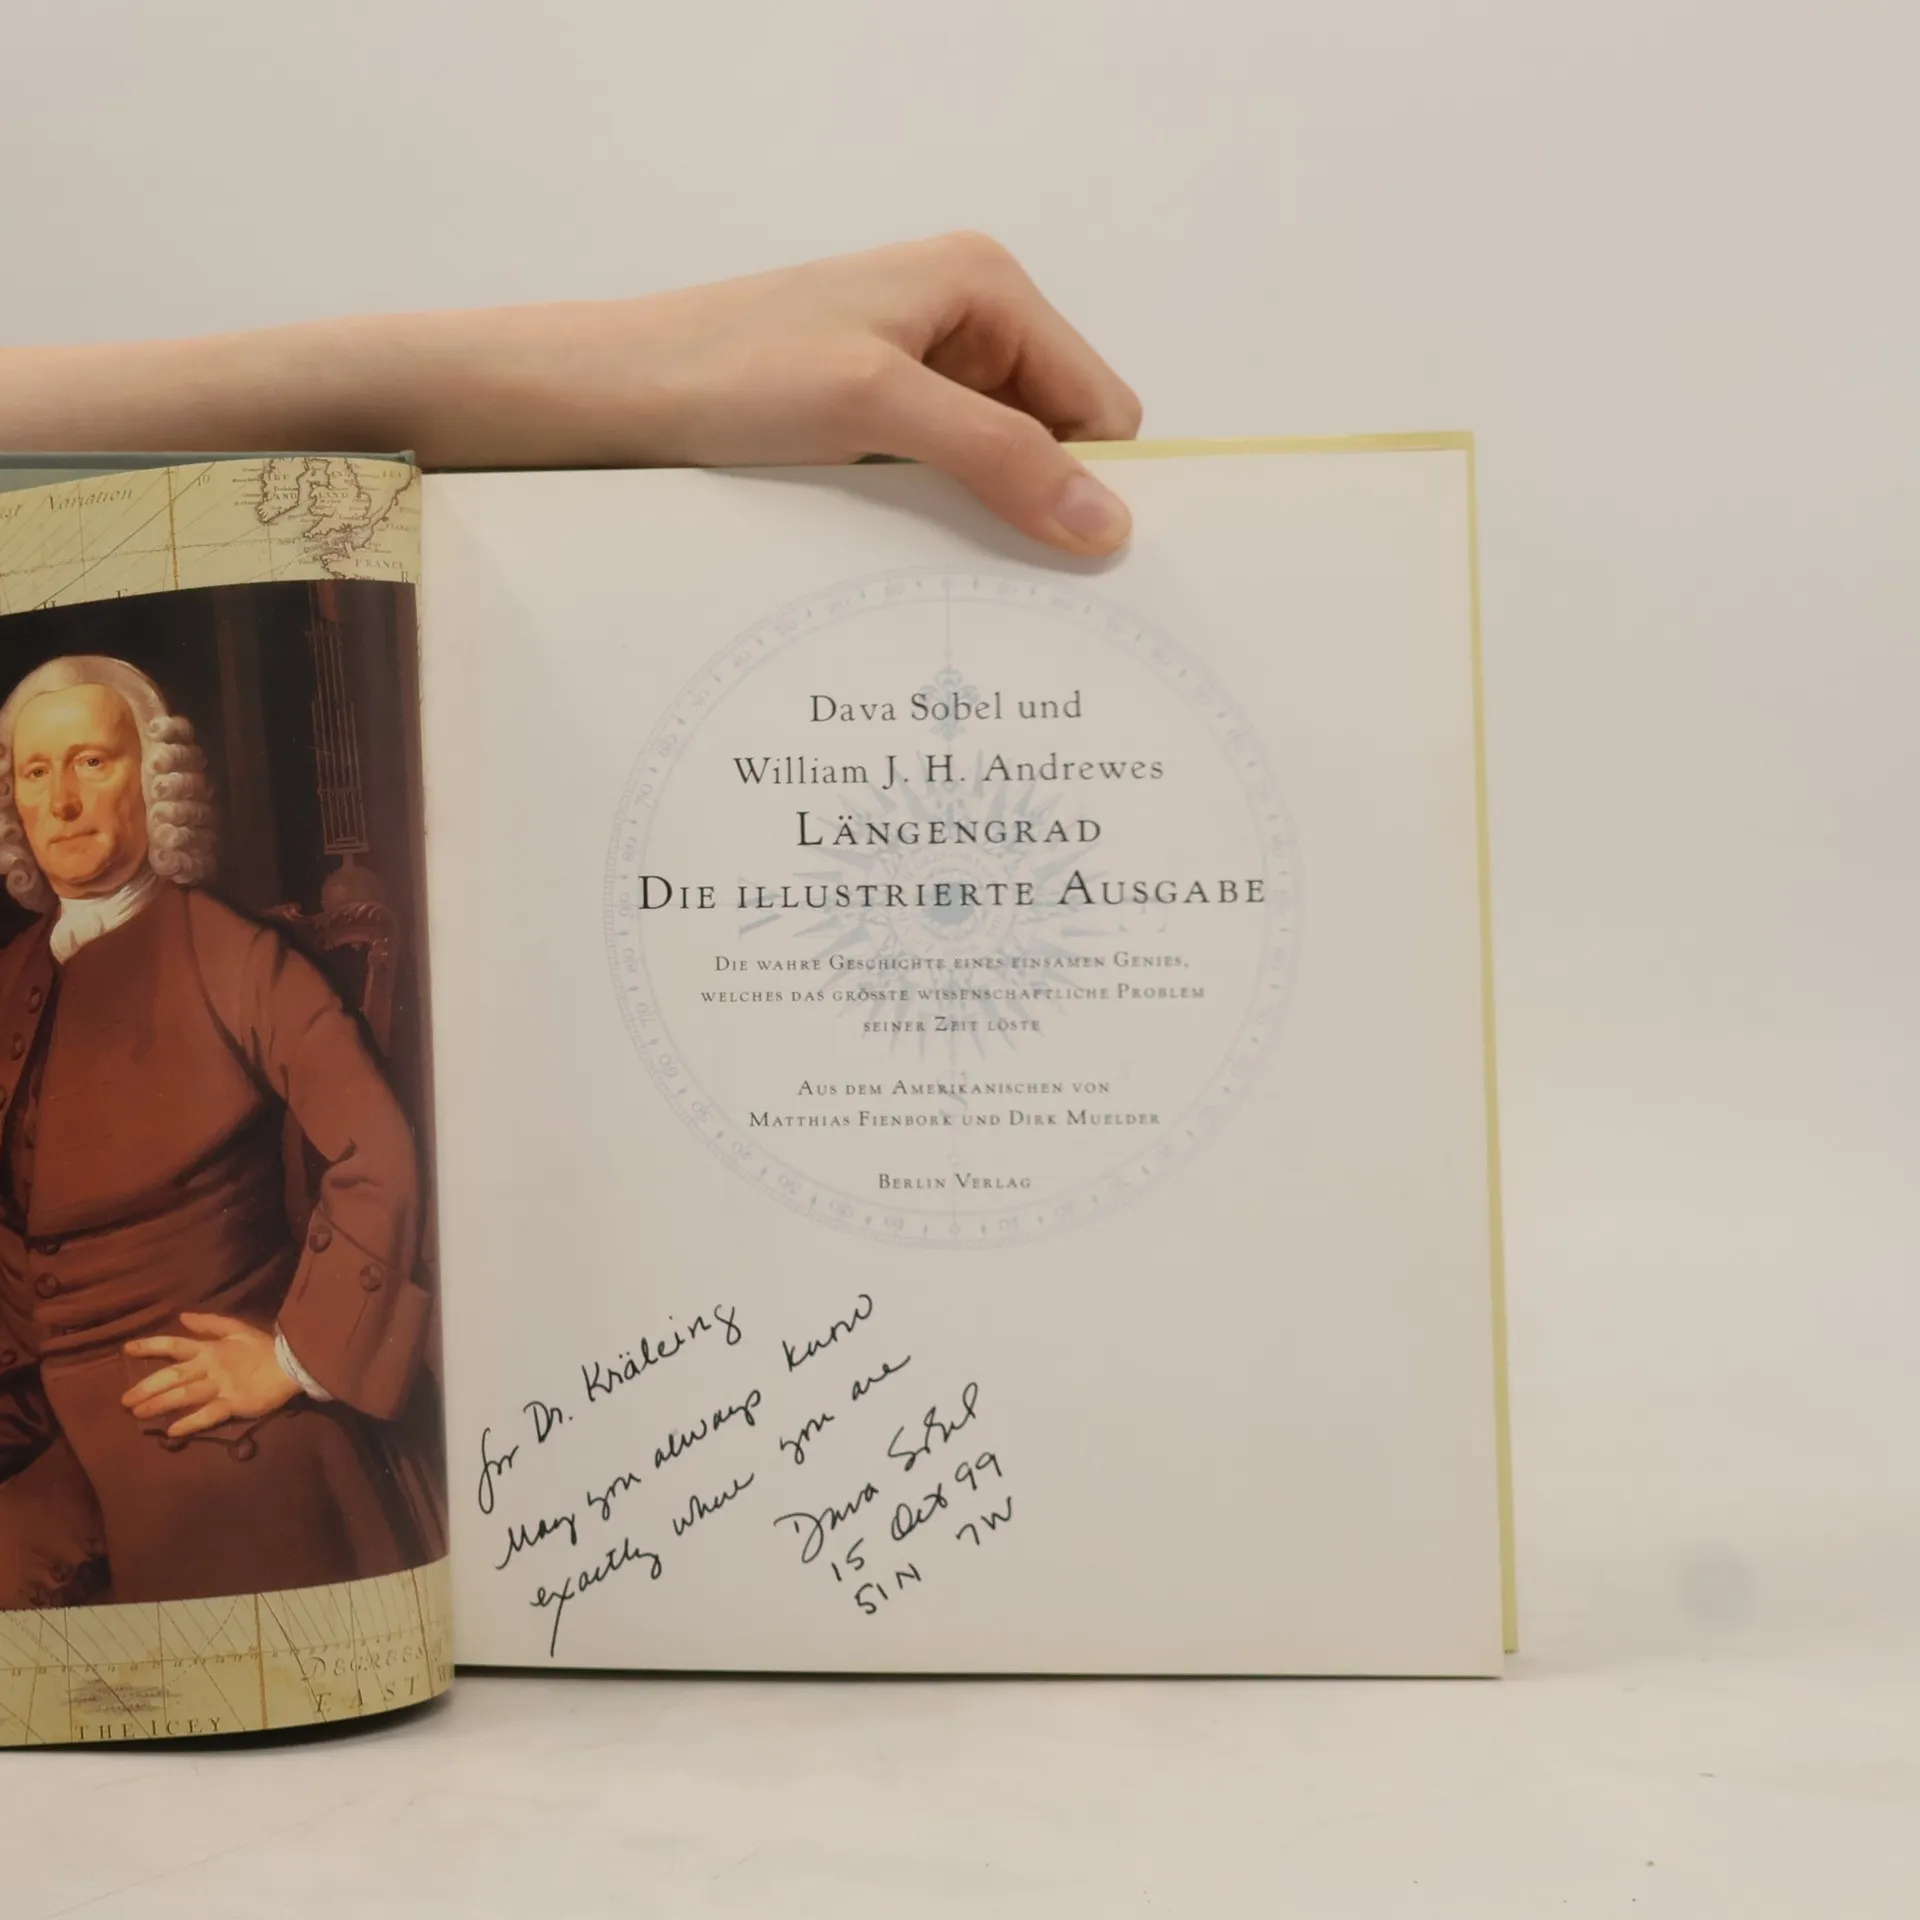 Variation
10
IRE
LAND
FRANCE
Dava Sobel und
William J. H. Andrewes
LÄNGENGRAD
DIE ILLUSTRIERTE AUSGABE
DIE WAHRE GESCHICHTE EINES EINSAMEN GENIES,
WELCHES DAS GRÖSSTE WISSENSCHAFTLICHE PROBLEM
SEINER ZEIT LÖSTE
AUS DEM AMERIKANISCHEN VON
MATTHIAS FIENBORK UND DIRK MUELDER
BERLIN VERLAG
for Dr. Kräleing
May you always know
exactly where you are
Dava Sobel
15 Oct 99
51 N 7 W
DEGREES
EAST
THE ICEY